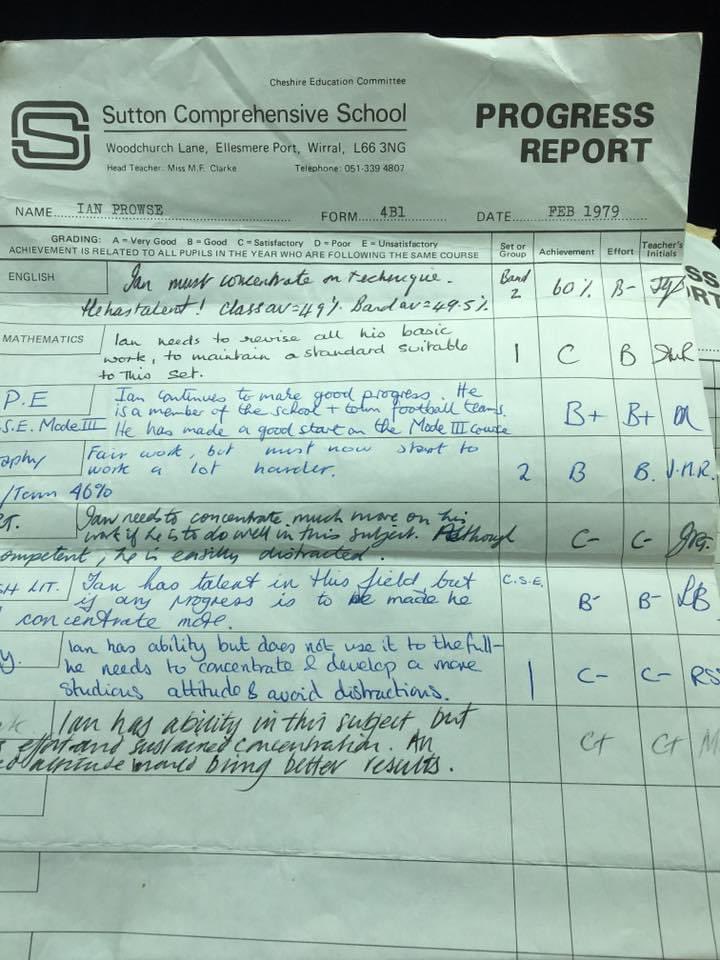 Cheshire Education Committee
S
Sutton Comprehensive School
PROGRESS
REPORT
Woodchurch Lane, Ellesmere Port, Wirral, L66 3NG
Head Teacher: Miss M.F. Clarke Telephone: 051-339 4807
NAME IAN PROWSE FORM 4B1 DATE FEB 1979
GRADING: A = Very Good B = Good C = Satisfactory D = Poor E = Unsatisfactory
ACHIEVEMENT IS RELATED TO ALL PUPILS IN THE YEAR WHO ARE FOLLOWING THE SAME COURSE
Set or Group Achievement Effort Teacher's Initials
ENGLISH Ian must concentrate on technique. Band 2 60% B-
He has talent! Class av = 49% Band av = 49.5%
MATHEMATICS Ian needs to revise all his basic
work, to maintain a standard suitable 1 C B
to this set.
P.E Ian continues to make good progress. He
is a member of the school + town football teams. B+ B+
S.E. Mode III He has made a good start on the Mode III course
aphy Fair work, but must now start to
work a lot harder. 2 B B. J.M.R.
/Term 46%
Ian needs to concentrate much more on his
work if he is to do well in this subject. Although C- C-
ompetent, he is easily distracted.
SH LIT. Ian has talent in this field, but C.S.E.
if any progress is to be made he B- B- LB
concentrate more.
y. Ian has ability but does not use it to the full-
he needs to concentrate & develop a more 1 C- C- RS
studious attitude & avoid distractions.
Ian has ability in this subject, but
effort and sustained concentration. An C+ C+ M
attitude would bring better results.